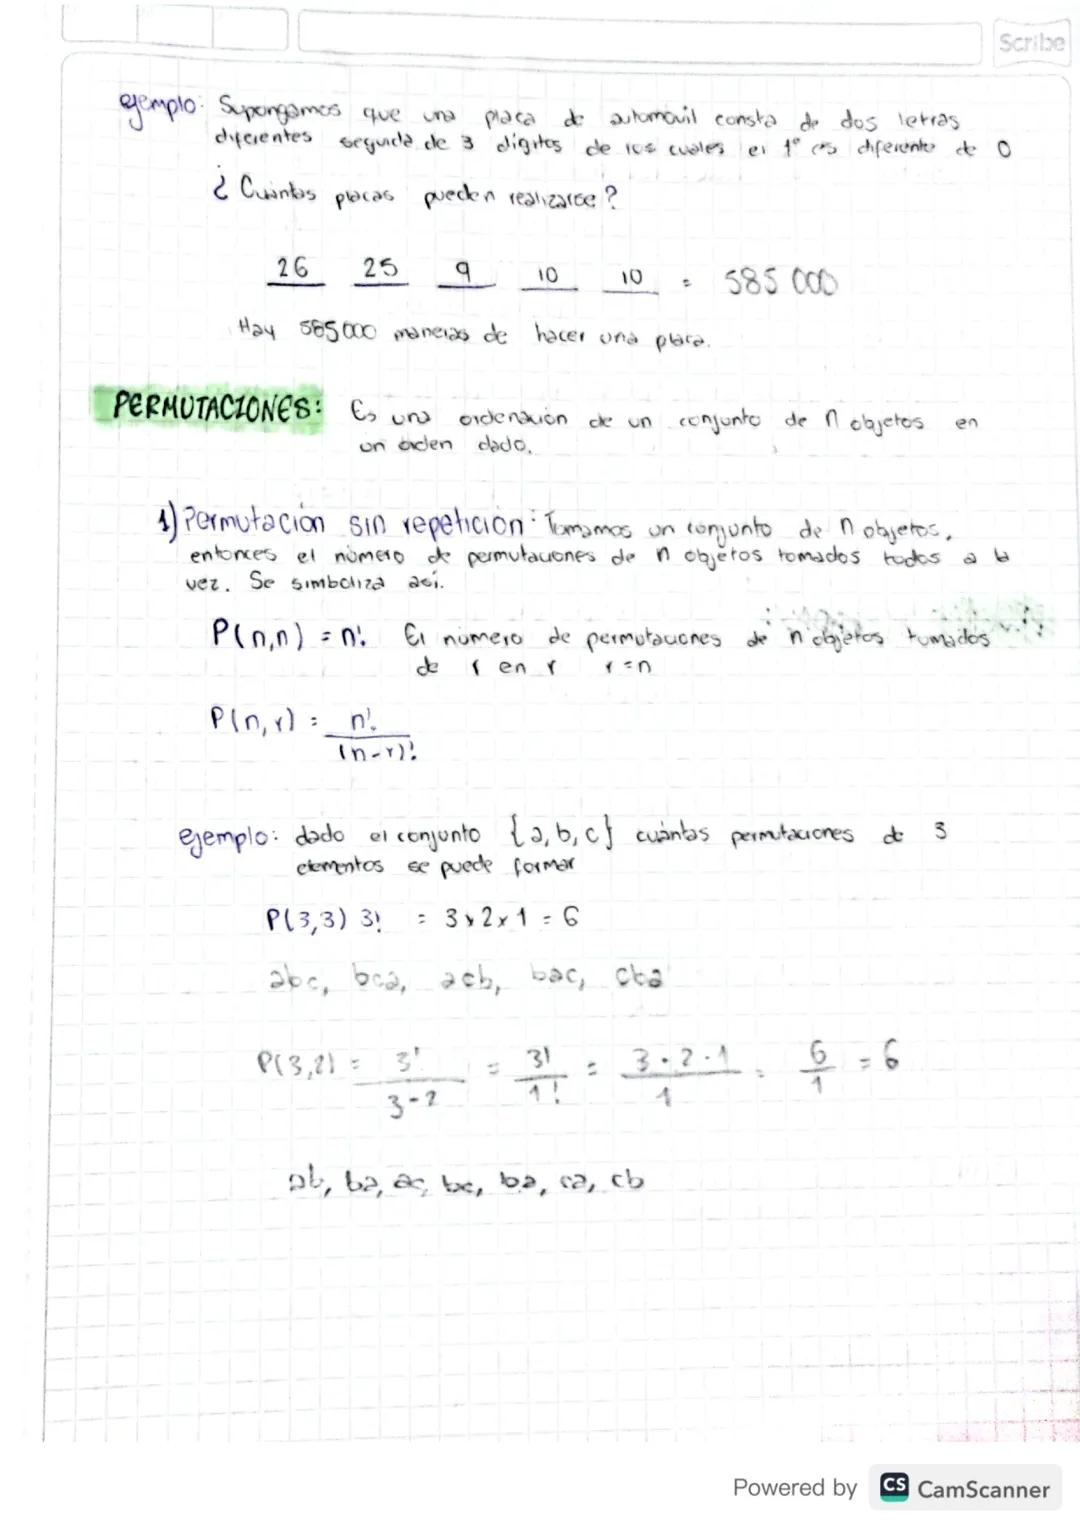 Scribe
ejemplo: Supongamos que una placa de automovil consta de dos letras
diferentes seguida de 3 dígitos de los cuales el 1° es diferente de 0
¿Cuántas placas pueden realizarse?
26 25 9 10 10 = 585 000
Hay 585000 maneras de hacer una placa.
PERMUTACIONES: Es una ordenación de un conjunto de n objetos en
un orden dado.
1) Permutación sin repetición: Tomamos un conjunto de n objetos,
entonces el número de permutaciones de n objetos tomados todos a la
vez. Se simboliza así.
P(n,n) = n! El número de permutaciones de n objetos tomados
de r en r r=n
P(n,r) = n!
(n-r)!
ejemplo: dado el conjunto {a,b,c} cuántas permutaciones de 3
elementos se puede formar
P(3,3) 3! = 3x2x1 = 6
abc, bca, acb, bac, cba
P(3,2) = 3! = 3! = 3·2·1 = 6 = 6
3-2 1! 1 1
ab, ba, ac, bc, ba, ca, cb
Powered by CS CamScanner